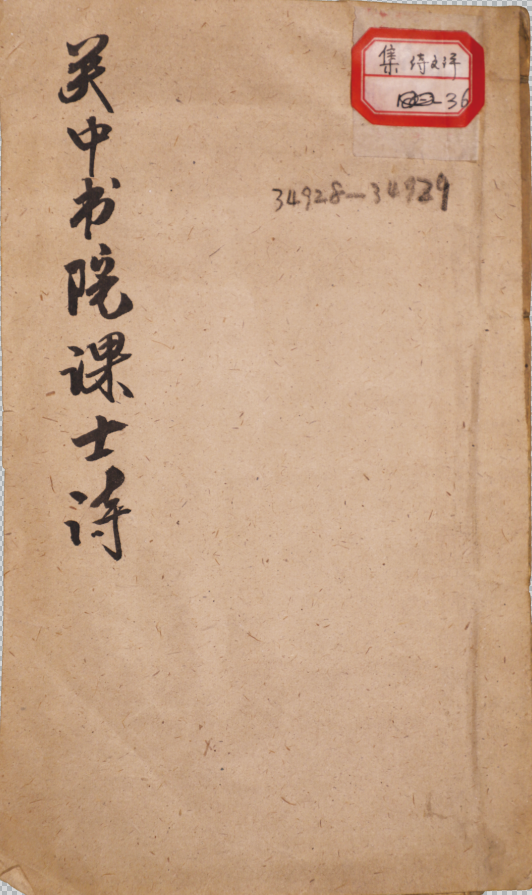 关中书院课士诗
集 诗文评
36
34928—34929